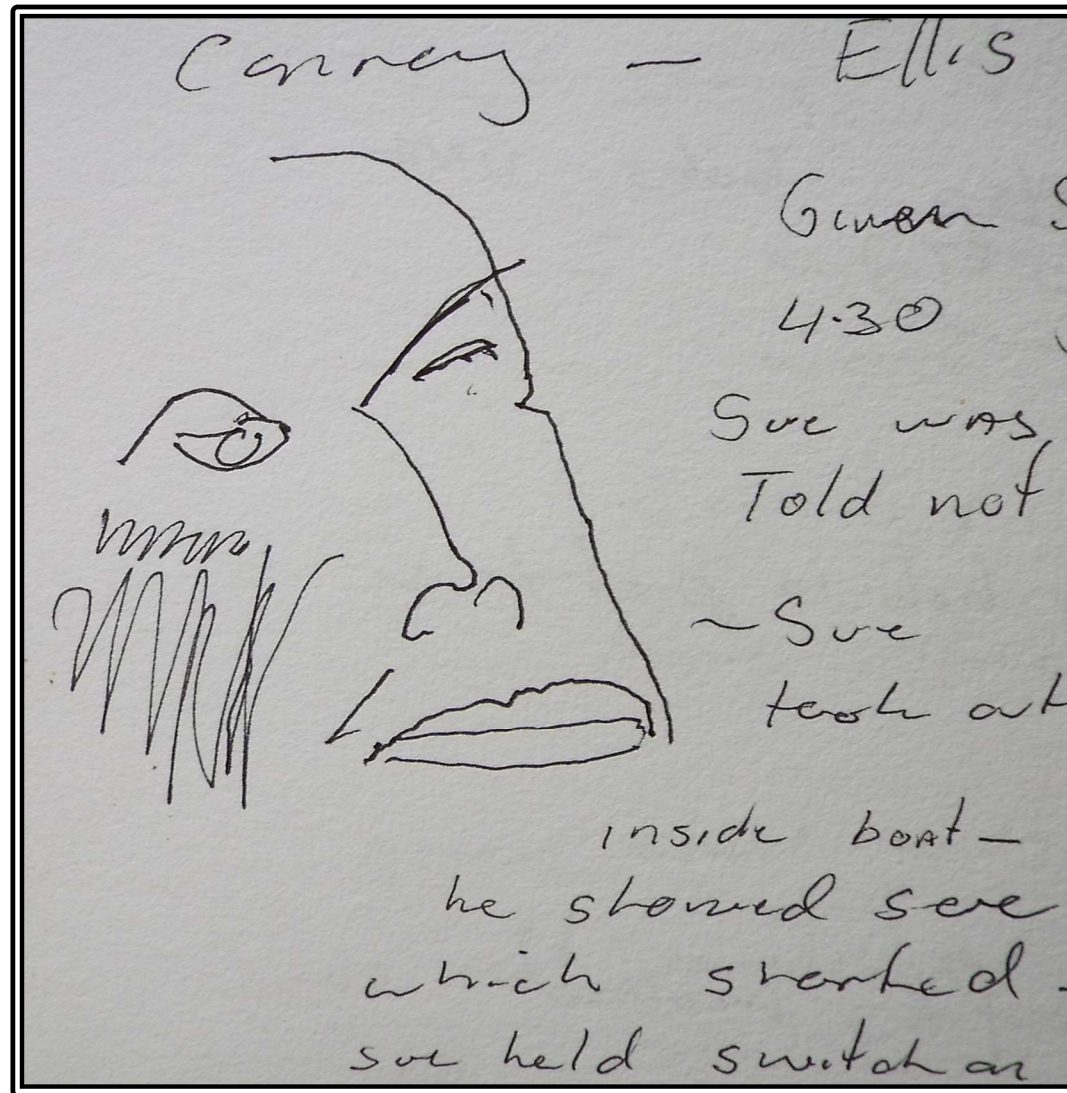 — Ellis
Given S
4.30
Sue was
Told not
~ Sue
took out
inside boat —
he showed Sue
which started -
sue held switch on